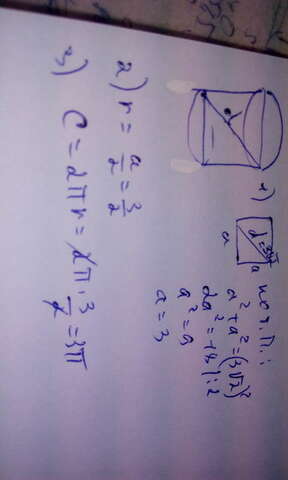 1) d=3√2 по т. П.:
a
a
a² + a² = (3√2)²
2a² = 18 |:2
a² = 9
a = 3
2) r = a/2 = 3/2
3) C = 2πr = 2π · 3/2 = 3π